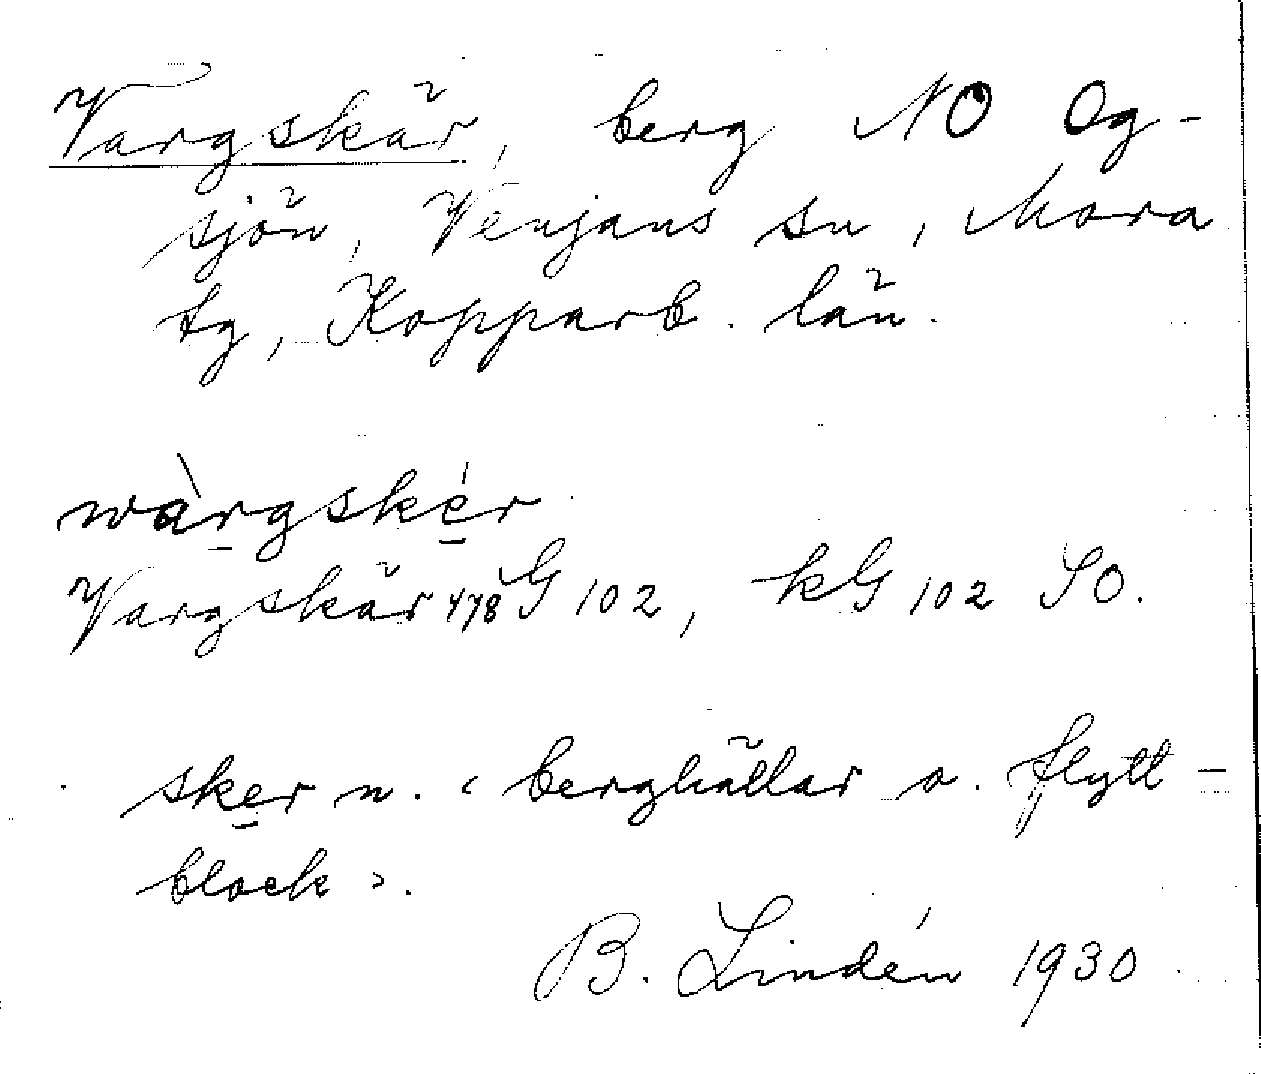 Vargskär, berg NO Og-
sjön, Venjans sn, Mora
tg, Kopparb. län.
wàrgskér
Vargskär 478 G 102, kG 102 SO.
sker n. ‹ berghällar o. flytt-
block ›.
B. Lindén 1930